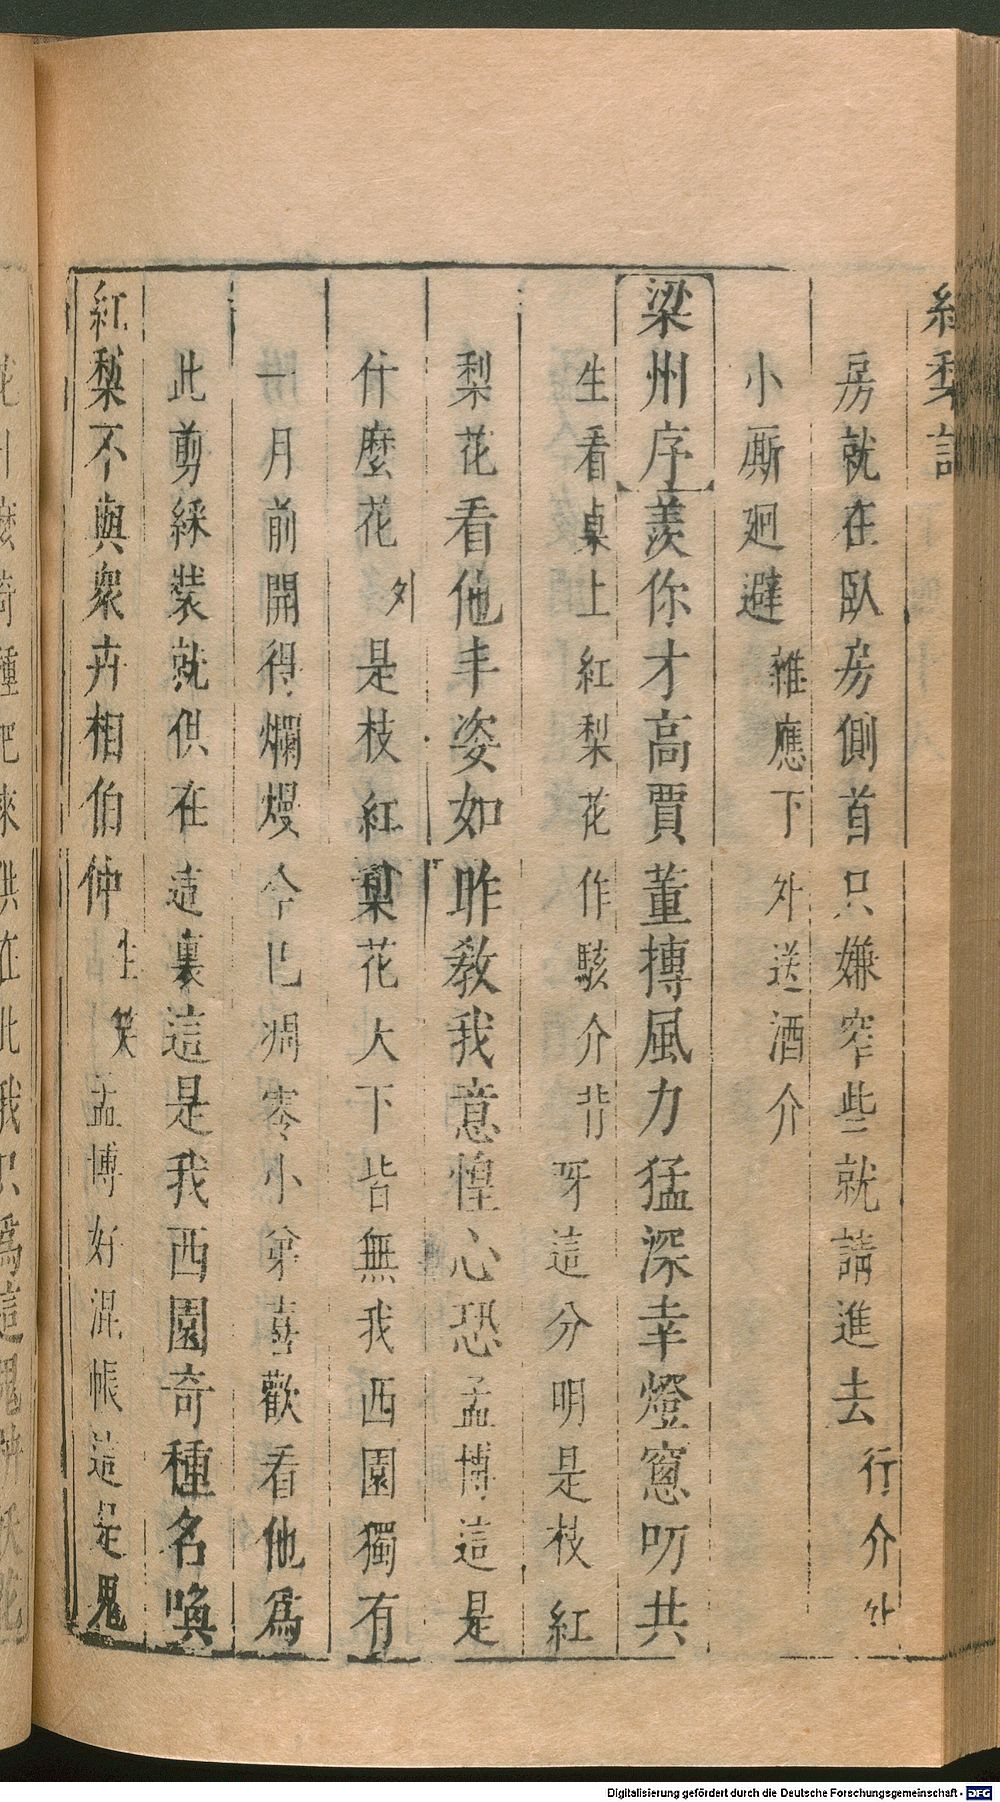 紅梨記
房就在臥房側首只嫌窄些就請進去行介外
小厮廻避雜應下外送酒介
梁州序羨你才高賈董摶風力猛深幸燈窻叨共
生看桌上紅梨花作駭介背呀這分明是枝紅
梨花看他丰姿如昨教我意惶心恐孟博這是
什麼花外是枝紅梨花大下皆無我西園獨有
一月前開得爛熳今已凋零小弟喜歡看他爲
此剪綵裝就供在這裏這是我西園奇種名喚
紅梨不與衆卉相伯仲生笑孟博好混帳這是鬼
Digitalisierung gefördert durch die Deutsche Forschungsgemeinschaft - DFG